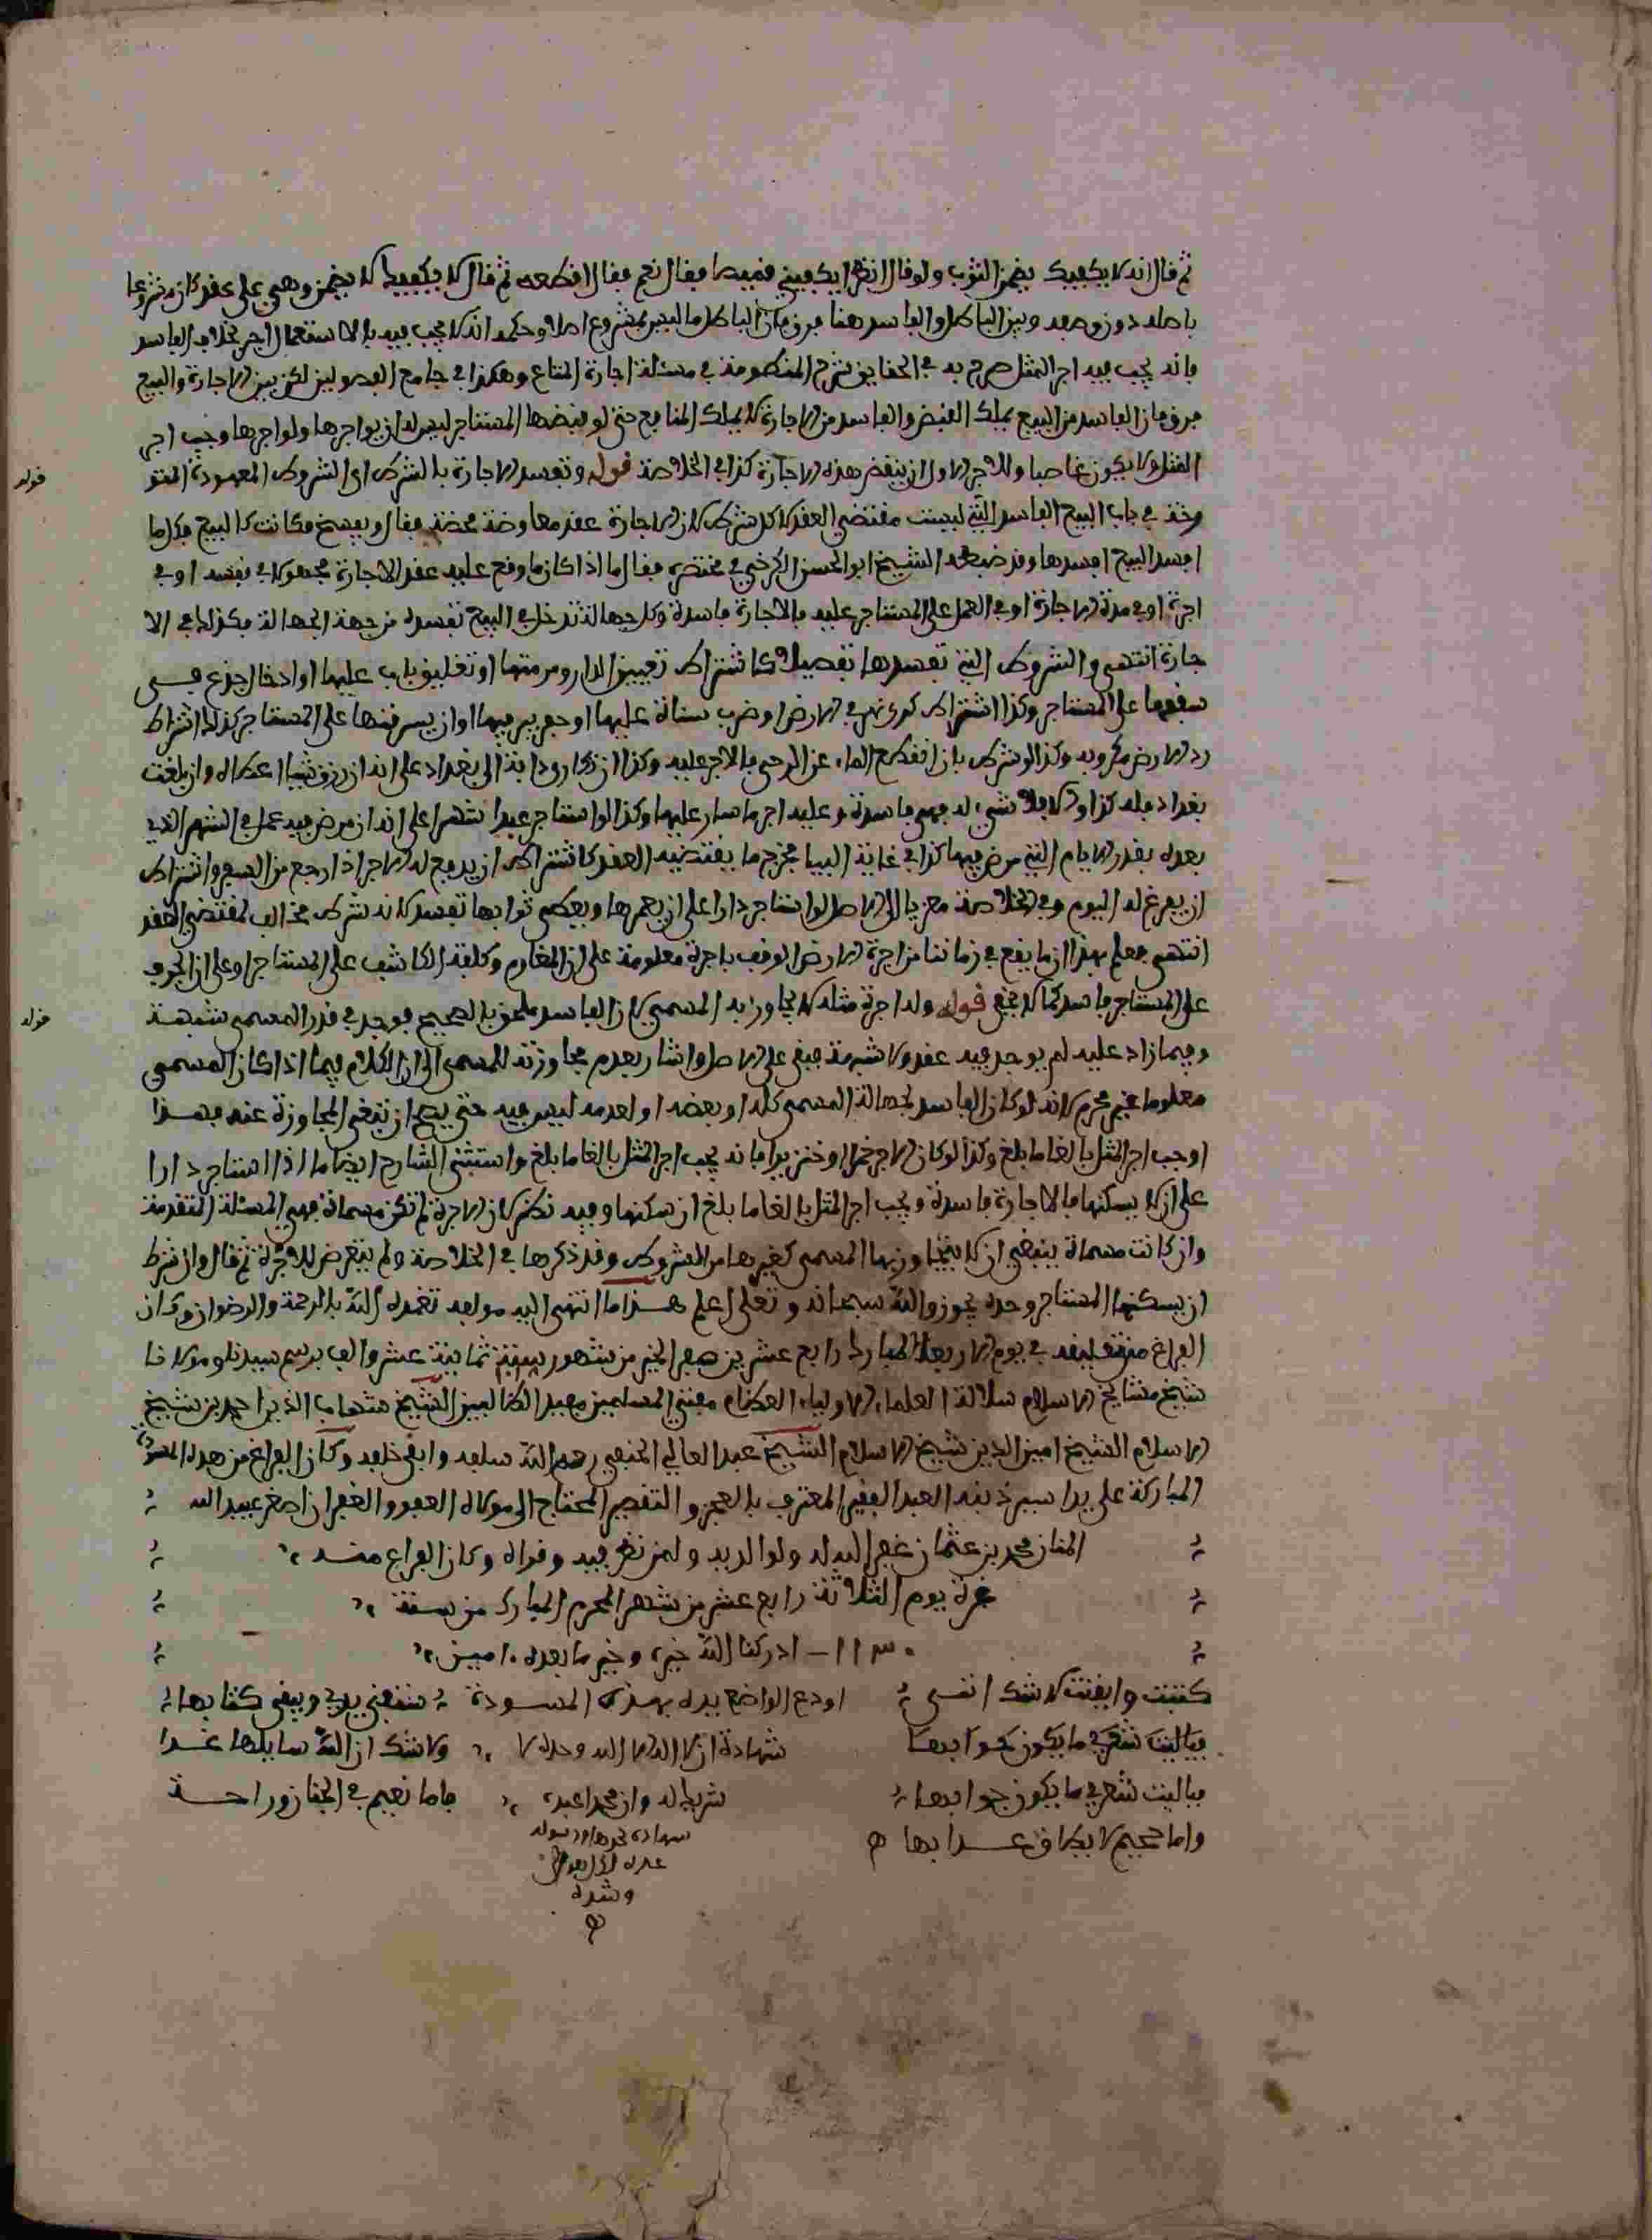 ثم قال انه لا يكفيك يضمن الثوب ولو قال انظر ايكفيني قميصا فقال نعم فقال اقطعه ثم قال لا يكفيك لا يضمن وهي على عقد كان مشروعا
باصله دون وصفه وبين الباطل والفاسد هنا فرق فان الباطل ما ليس بمشروع اصلا وحكمه انه لا يجب فيه بالاستعمال اجر بخلاف الفاسد
فانه يجب فيه اجر المثل صرح به في الحقايق شرح المنظومة في مسئلة اجارة المتاع وهكذا في جامع الفصولين لكن بين الاجارة والبيع
فرق فان الفاسد من البيع يملك بالقبض والفاسد من الاجارة لا يملك المنافع حتى لو قبضها المستاجر ليس له ان يواجرها ولو اجرها وجب اجر
المثل ولا يكون غاصبا وللاجر الاول ان ينقض هذه الاجارة كذا في الخلاصة قوله وتفسد الاجارة بالشرط اي الشروط المعهودة المتقد
قوله
ومة في باب البيع الفاسد التي ليست مقتضى العقد لا كل شرط لان الاجارة عقد معاوضة محضة يقال ويفسخ فكانت كالبيع فكل ما
افسد البيع افسدها وقد ضبطه الشيخ ابو الحسن الكرخي في مختصره فقال ما اذا كان ما وقع عليه عقد الاجارة مجهولا في نفسه او في
اجرة او في مدة الاجارة او في العمل على المستاجر عليه فالاجارة فاسدة وكل جهالة تدخل في البيع تفسده من جهة الجهالة فكذلك في الا
جارة انتهى والشروط التي تفسدها تفصيلا كاشتراط تعيين الدار ومرمتها او تغليق باب عليها او ادخال جذع في
سقفها على المستاجر وكذا اشتراط كري نهر في الارض او ضرب مسناة عليها او حفر بير فيها او ان يسرقنها على المستاجر كذلك اشتراط
رد الارض مكروبة وكذا لو شرط بان انقطع الماء عن الرحى فالاجر عليه وكذا ان تكارى دابة الى بغداد على انه ان رزق شيئا اعطاه وان بلغت
بغداد فله كذا والا فلا شيء له فهي فاسدة وعليه اجر ما سار عليها وكذا لو استاجر عبدا شهرا على انه ان مرض فيه عمل في الشهر الذي
بعده بقدر الايام التي مرض فيها كذا في غاية البيان فخرج ما يقتضيه العقد كاشتراط ان يدفع له الاجر اذا رجع من السفر واشتراط
ان يفرغ له اليوم وفي الخلاصة معزيا الى الاصل لو استاجر دارا على ان يعمرها ويعطي نوابها تفسد لانه شرط مخالف لمقتضى العقد
انتهى فعلم بهذا ان ما يقع في زماننا من اجرة الارض الوقف باجرة معلومة على ان المغارم وكلفة الكاشف على المستاجر او على ان الجرف
على المستاجر فاسد كما لا يخفى قوله وله اجرة مثله لا يجاوز به المسمى لان الفاسد ملحق بالصحيح فوجد في قدر المسمى شبهة
قوله
وفيما زاد عليه لم يوجد فيه عقد ولا شبهة فبقي على الاصل واشار بعدم مجاوزته للمسمى الى ان الكلام فيما اذا كان المسمى
معلوما غير محرم لانه لو كان الفاسد لجهالة المسمى كله او بعضه او لعدمه ليس فيه حتى يصح ان تنفى المجاوزة عنه فهذا
اوجب اجر المثل بالغا ما بلغ وكذا لو كان الاجر خمرا او خنزيرا فانه يجب اجر المثل بالغا ما بلغ واستثنى الشارح ايضا ما اذا استاجر دارا
على ان لا يسكنها فالاجارة فاسدة ويجب اجر المثل بالغا ما بلغ ان سكنها وفيه نظر لان الاجرة ان لم تكن مسماة فهي المسئلة المتقدمة
وان كانت مسماة ينبغي ان لا يتجاوز بها المسمى كغيرها من الشروط وقد ذكرها في الخلاصة ولم يتعرض للاجرة ثم قال وان شرط
ان يسكنها المستاجر وحده يجوز والله سبحانه وتعلى اعلم هذا ما انتهى اليه مولفه تغمده الله بالرحمة والرضوان وكان
الفراغ من تعليقه في يوم الاربعا المبارك رابع عشرين صفر الخير من شهور سنة ثمانية عشر والف برسم سيدنا ومولانا
شيخ مشايخ الاسلام سلالة العلماء الاولياء العظام مفتي المسلمين مفيد الطالبين الشيخ شهاب الدين احمد بن شيخ
الاسلام الشيخ امين الدين شيخ الاسلام الشيخ عبد العالي الحنفي رحم الله سلفه وابقى خلفه وكان الفراغ من هذه المسودة
المباركة على يد اسير ذنبه العبد الفقير المعترف بالعجز والتقصير المحتاج الى مولاه العفو والغفران اصغر عبيد الله
المنان محمد بن عثمان غفر الله له ولوالديه ولمن نظر فيه وقراه وكان الفراغ منه
غرة يوم الثلاثة رابع عشر من شهر المحرم المبارك من سنة
١١٣٠ ادركنا الله خيره وخير ما بعده امين
كتبت وايقنت لا شك انني
ستفنى يدي ويبقى كتابها
فياليت شعري ما يكون جوابها
ولا شك ان الله سايلها غدا
فياليت شعري ما يكون جوابها
فاما نعيم في الجنان وراحة
واما جحيم لا يطاق عذابها
اودع الواضع يده بهذه المسودة
شهادة ان لا اله الا الله وحده لا
شريك له وان محمدا عبده